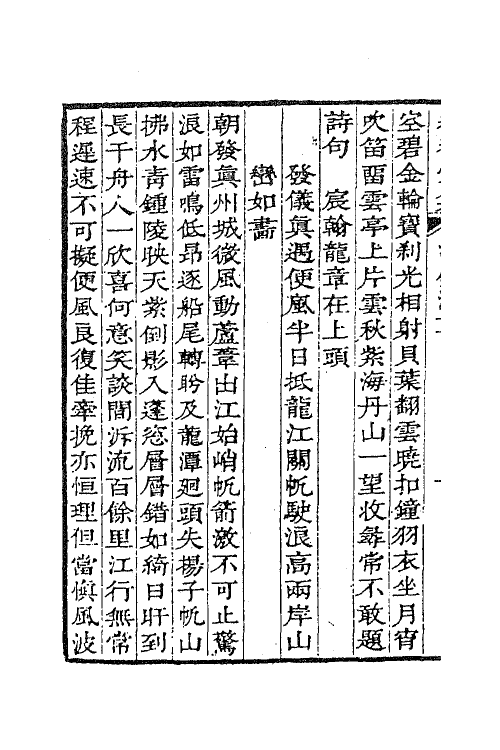 空碧金輪寶刹光相射貝葉翻雲曉扣鐘羽衣坐月宵
吹笛畱雲亭上片雲秋紫海丹山一望收尋常不敢題
詩句　宸翰龍章在上頭
發儀眞遇便風半日抵龍江關帆駛浪高兩岸山
巒如畵
朝發眞州城微風動蘆葦出江始峭帆箭激不可止驚
浪如雷鳴低昂逐船尾轉盼及龍潭廻頭失揚子帆山
拂水青鍾陵映天紫倒影入蓬窓層層錯如綺日旰到
長干舟人一欣喜何意笑談間泝流百餘里江行無常
程遲速不可擬便風良復佳牽挽亦恒理但當愼風波